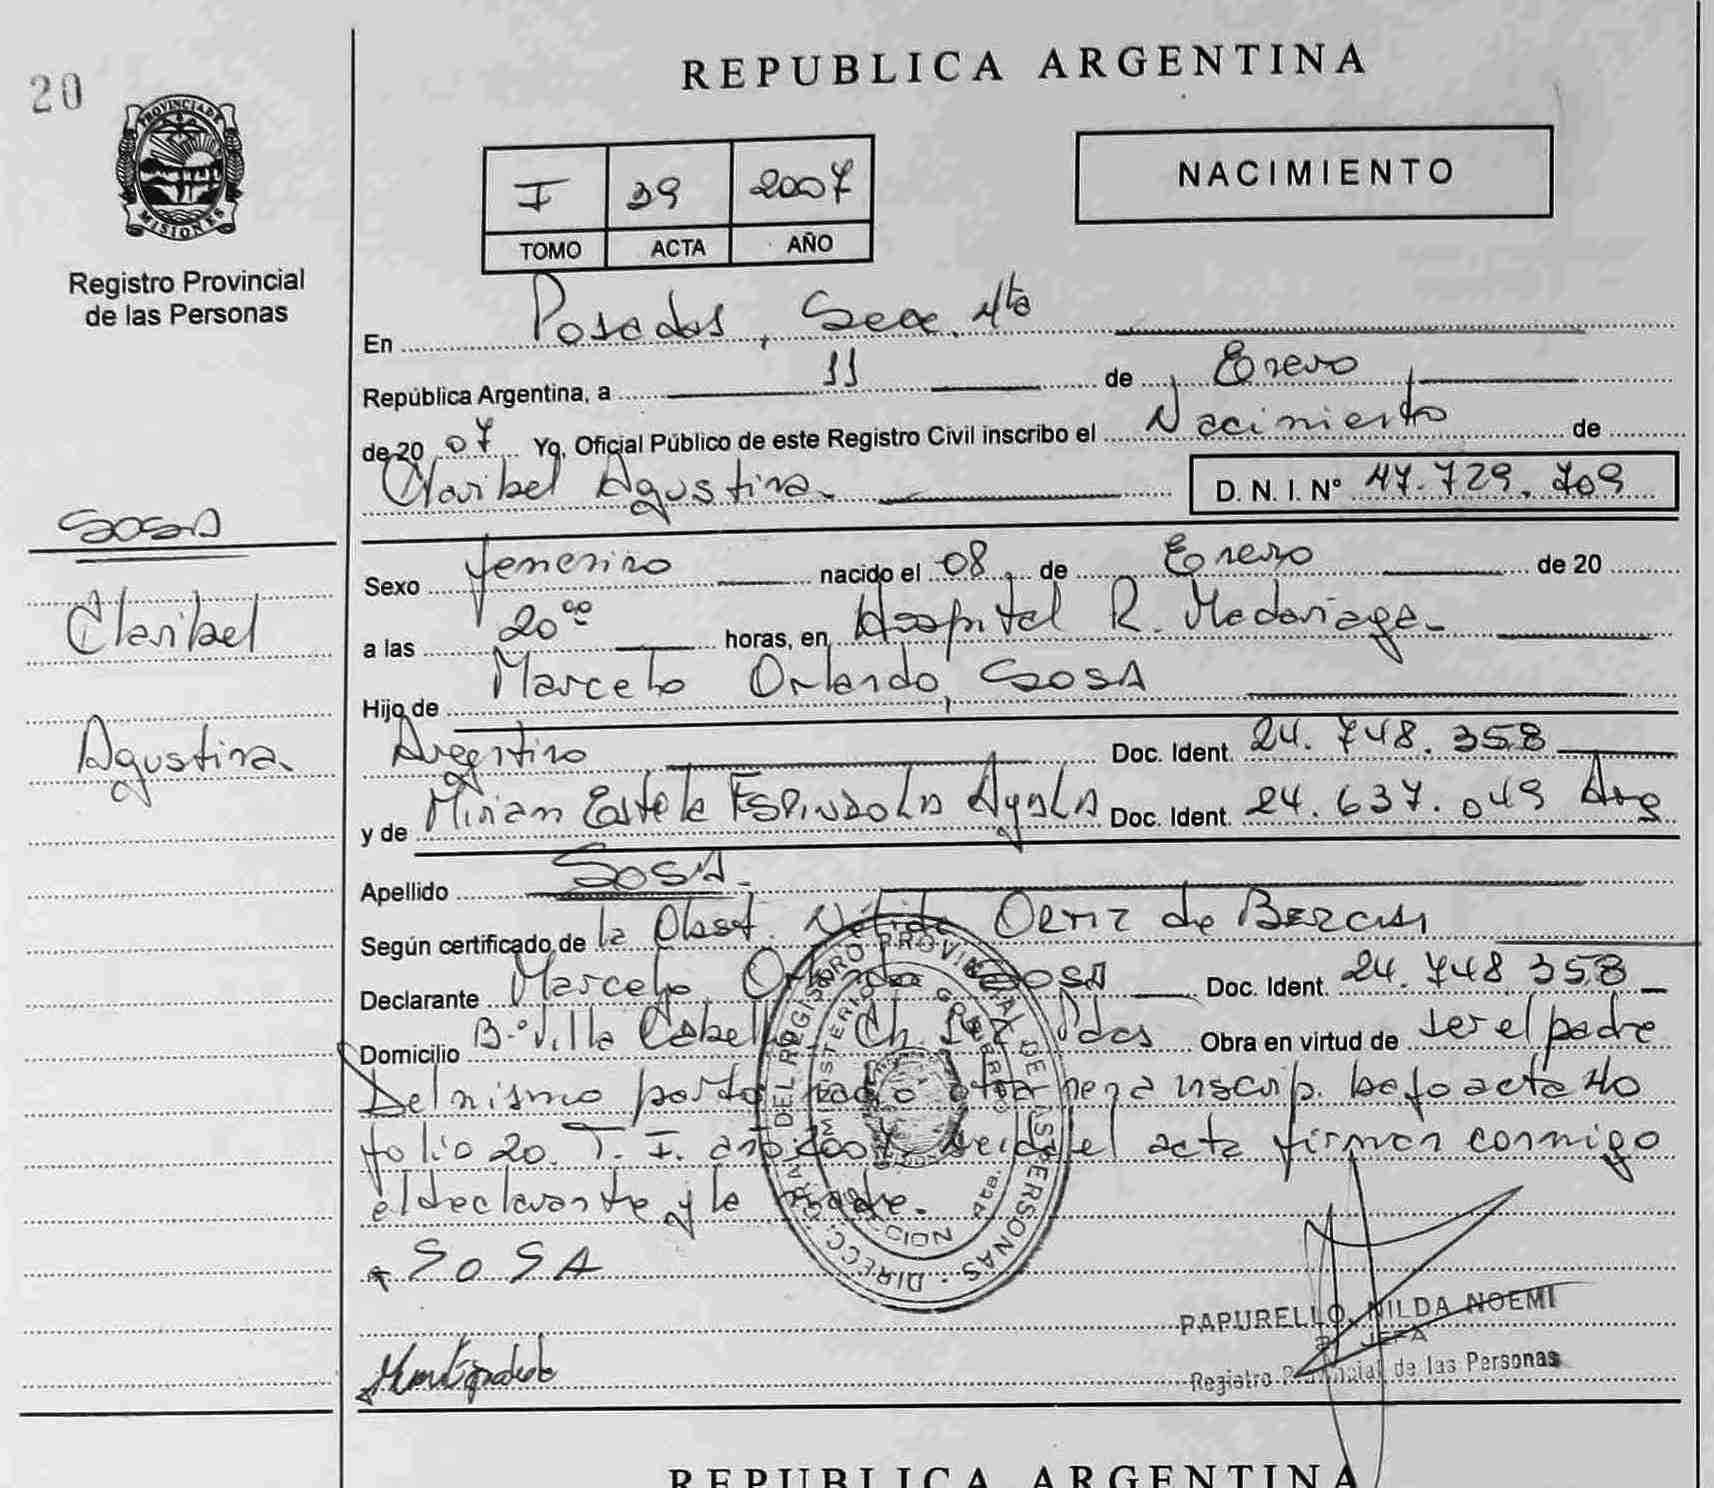 20
PROVINCIA DE
MISIONES
Registro Provincial
de las Personas
REPUBLICA ARGENTINA
I 39 2007
TOMO ACTA AÑO
NACIMIENTO
En Posadas, Secc. 4ta
República Argentina, a 11 de Enero
de 20 07 Yo, Oficial Público de este Registro Civil inscribo el Nacimiento de
Claribel Agustina D. N. I. Nº 47.729.709
SOSA
Claribel
Agustina
Sexo femenino nacido el 08 de Enero de 20
a las 20 oo horas, en Hospital R. Madariaga
Hijo de Marcelo Orlando, SOSA
Argentino Doc. Ident. 24.748.358
y de Mirian Estela ESPINDOLA AYALA Doc. Ident. 24.637.049 Arg
Apellido SOSA
Según certificado de la Obst. Nélida ORTIZ de
Declarante Marcelo Orlando SOSA Doc. Ident. 24.748.358
Domicilio B° Villa Cabello Ch. Pdas Obra en virtud de ser el padre
Del mismo parto nacio otra nena inscrip. bajo acta 40
folio 20. T. I. año 2007 leida el acta firman conmigo
el declarante y la madre.
SOSA
DIRECC. GRAL. DEL REGISTRO PROVINCIAL DE LAS PERSONAS
MINISTERIO DE GOBIERNO
SECCION 4ta.
PAPURELLO, NILDA NOEMI
JEFA
Registro Provincial de las Personas
REPUBLICA ARGENTINA